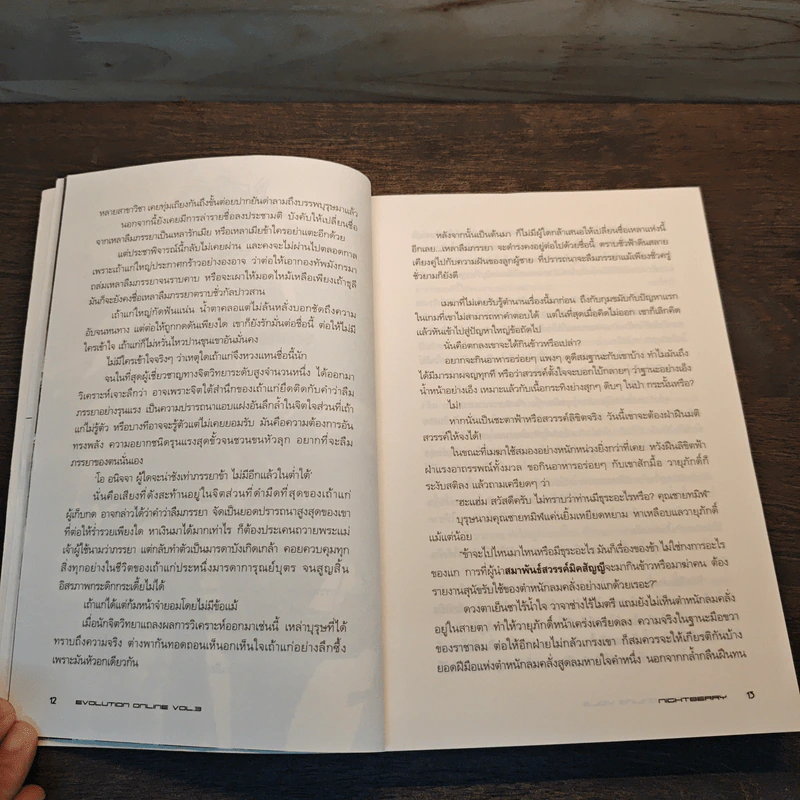 หลายสาขาวิชา เคยทุ่มเถียงกันถึงขั้นต่อยปากยันด่าลามถึงบรรพบุรุษมาแล้ว
นอกจากนี้ยังเคยมีการล่ารายชื่อลงประชามติ บังคับให้เปลี่ยนชื่อ
จากเหลาลืมภรรยาเป็นเหลารักเมีย หรือเหลาเมียข้าใครอย่าแตะอีกด้วย
แต่ประชาพิจารณ์นี้กลับไม่เคยผ่าน และคงจะไม่ผ่านไปตลอดกาล
เพราะเถ้าแก่ใหญ่ประกาศกร้าวอย่างองอาจ ว่าต่อให้เอากองทัพมังกรมา
ถล่มเหลาลืมภรรยาจนราบคาบ หรือจะเผาให้มอดไหม้เหลือเพียงเถ้าธุลี
มันก็จะยังคงชื่อเหลาลืมภรรยาตราบชั่วกัลปาวสาน
เถ้าแก่ใหญ่กัดฟันแน่น น้ำตาคลอแต่ไม่ลั่นหลั่งบอกชัดถึงความ
อับจนหนทาง แต่ต่อให้ถูกกดดันเพียงใด เขาก็ยังรักมั่นต่อชื่อนี้ ต่อให้ไม่มี
ใครเข้าใจ เถ้าแก่ก็ไม่หวั่นไหวปานขุนเขาอันมั่นคง
ไม่มีใครเข้าใจจริงๆ ว่าเหตุใดเถ้าแก่จึงหวงแหนชื่อนี้นัก
จนในที่สุดผู้เชี่ยวชาญทางจิตวิทยาระดับสูงจำนวนหนึ่ง ได้ออกมา
วิเคราะห์เจาะลึกว่า อาจเพราะจิตใต้สำนึกของเถ้าแก่ยึดติดกับคำว่าลืม
ภรรยาอย่างรุนแรง เป็นความปรารถนาแอบแฝงอันลึกล้ำในจิตใจส่วนที่เถ้า
แก่ไม่รู้ตัว หรือบางทีอาจจะรู้ตัวแต่ไม่เคยยอมรับ มันคือความต้องการอัน
ทรงพลัง ความอยากชนิดรุนแรงสุดขั้วจนชวนขนหัวลุก อยากที่จะลืม
ภรรยาของตนนั่นเอง
'โอ อนิจจา ผู้ใดจะน่าชังเท่าภรรยาข้า ไม่มีอีกแล้วในต่ำใต้'
นั่นคือเสียงที่ดังสะท้านอยู่ในจิตส่วนที่ดำมืดที่สุดของเถ้าแก่
ผู้เก็บกด อาจกล่าวได้ว่าคำว่าลืมภรรยา จัดเป็นยอดปรารถนาสูงสุดของเขา
ที่ต่อให้ร่ำรวยเพียงใด หาเงินมาได้มากเท่าไร ก็ต้องประเคนถวายพระแม่
เจ้าผู้ใช้นามว่าภรรยา แต่กลับทำตัวเป็นมารดาบังเกิดเกล้า คอยควบคุมทุก
สิ่งทุกอย่างในชีวิตของเถ้าแก่ประหนึ่งมารดาการุณย์บุตร จนสูญสิ้น
อิสรภาพกระดิกกระเดี้ยไม่ได้
เถ้าแก่ได้แต่ก้มหน้าจำยอมโดยไม่มีข้อแม้
เมื่อนักจิตวิทยาแถลงผลการวิเคราะห์ออกมาเช่นนี้ เหล่าบุรุษที่ได้
ทราบถึงความจริง ต่างพากันทอดถอนเห็นอกเห็นใจเถ้าแก่อย่างลึกซึ้ง
เพราะมันหัวอกเดียวกัน
12 EVOLUTION ONLINE VOL.3
หลังจากนั้นเป็นต้นมา ก็ไม่มีผู้ใดกล้าเสนอให้เปลี่ยนชื่อเหลาแห่งนี้
อีกเลย...เหลาลืมภรรยา จะดำรงคงอยู่ต่อไปด้วยชื่อนี้ ตราบชั่วฟ้าดินสลาย
เคียงคู่ไปกับความฝันของลูกผู้ชาย ที่ปรารถนาจะลืมภรรยาแม้เพียงชั่วครู่
ชั่วยามก็ยังดี
เมฆาที่ไม่เคยรับรู้ตำนานเรื่องนี้มาก่อน ถึงกับกุมขมับกับปัญหาแรก
ในเกมที่เขาไม่สามารถหาคำตอบได้ แต่ในที่สุดเมื่อคิดไม่ออก เขาก็เลิกคิด
แล้วหันเข้าไปสู่ปัญหาใหญ่ข้อถัดไป
นั่นคือตกลงเขาจะได้กินข้าวหรือเปล่า?
อยากจะกินอาหารอร่อยๆ แพงๆ ดูดีสมฐานะกับเขาบ้าง ทำไมมันถึง
ได้มีมารมาผจญทุกที หรือว่าสวรรค์ตั้งใจจะบอกใบ้กลายๆ ว่าฐานะอย่างเอ็ง
น้ำหน้าอย่างเอ็ง เหมาะแล้วกับเนื้อกระทิงย่างสุกๆ ดิบๆ ในป่า กระนั้นหรือ?
ไม่!
หากนั่นเป็นชะตาฟ้าหรือสวรรค์ลิขิตจริง วันนี้เขาจะต้องฝ่าฝืนมติ
สวรรค์ให้จงได้!
ในขณะที่เมฆาใช้สมองอย่างหนักหน่วงยิ่งกว่าที่เคย หวังฝืนลิขิตฟ้า
ฝ่าแรงอาถรรพณ์ทั้งมวล ขอกินอาหารอร่อยๆ กับเขาสักมื้อ วายุภักดิ์ก็
ระงับสติลง แล้วถามเครียดๆ ว่า
"ฮะแฮ่ม สวัสดีครับ ไม่ทราบว่าท่านมีธุระอะไรหรือ? คุณชายทมิฬ"
บุรุษนามคุณชายทมิฬแค่นยิ้มเหยียดหยาม หาเหลือบแลวายุภักดิ์
แม้แต่น้อย
"ข้าจะไปไหนมาไหนหรือมีธุระอะไร มันก็เรื่องของข้า ไม่ใช่กงการอะไร
ของแก การที่ผู้นำสมาพันธ์สวรรค์มิคสัญญีจะมากินข้าวหรือมาฆ่าคน ต้อง
รายงานสุนัขรับใช้ของตำหนักลมคลั่งอย่างแกด้วยเรอะ?"
ดวงตาเย็นชาไร้น้ำใจ วาจาช่างไร้ไมตรี แถมยังไม่เห็นตำหนักลมคลั่ง
อยู่ในสายตา ทำให้วายุภักดิ์หน้าเคร่งเครียดลง ความจริงในฐานะมือขวา
ของราชาลม ต่อให้อีกฝ่ายไม่กลัวเกรงเขา ก็สมควรจะให้เกียรติกันบ้าง
ยอดฝีมือแห่งตำหนักลมคลั่งสูดลมหายใจคำหนึ่ง นอกจากกล้ำกลืนฝืนทน
NIGHTBERRY 13